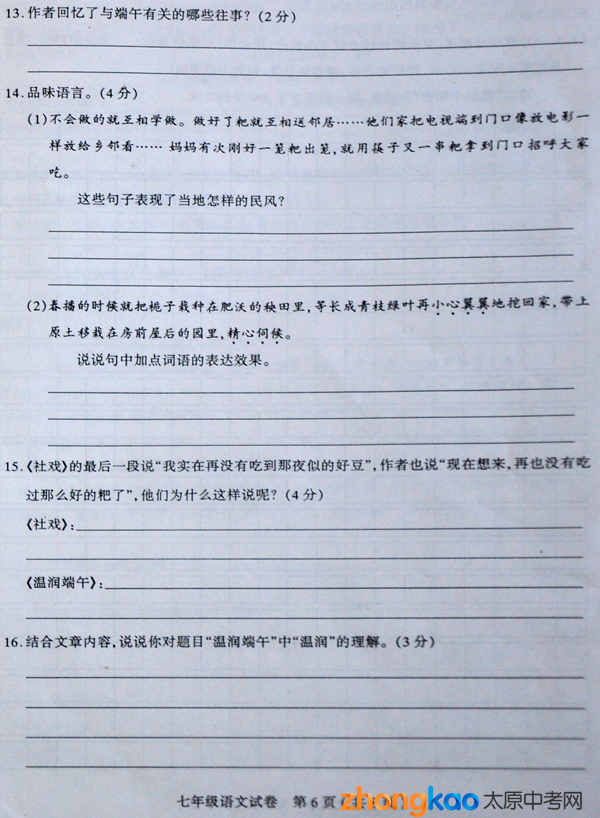 13.作者回忆了与端午有关的哪些往事？(2分)
14.品味语言。(4分)
(1)不会做的就互相学做。做好了粑就互相送邻居……他们家把电视端到门口像放电影一
样放给乡邻看…… 妈妈有次刚好一笼粑出笼,就用筷子叉一串粑拿到门口招呼大家
吃。
这些句子表现了当地怎样的民风?
(2)春播的时候就把栀子栽种在肥沃的秧田里,等长成青枝绿叶再小心翼翼地挖回家,带上
原土移栽在房前屋后的园里,精心伺候。
说说句中加点词语的表达效果。
15.《社戏》的最后一段说“我实在再没有吃到那夜似的好豆”,作者也说“现在想来,再也没有吃
过那么好的粑了”,他们为什么这样说呢?(4分)
《社戏》:
《温润端午》:
16.结合文章内容,说说你对题目“温润端午”中“温润”的理解。(3分)
七年级语文试卷 第6页
zhongkao太原中考网